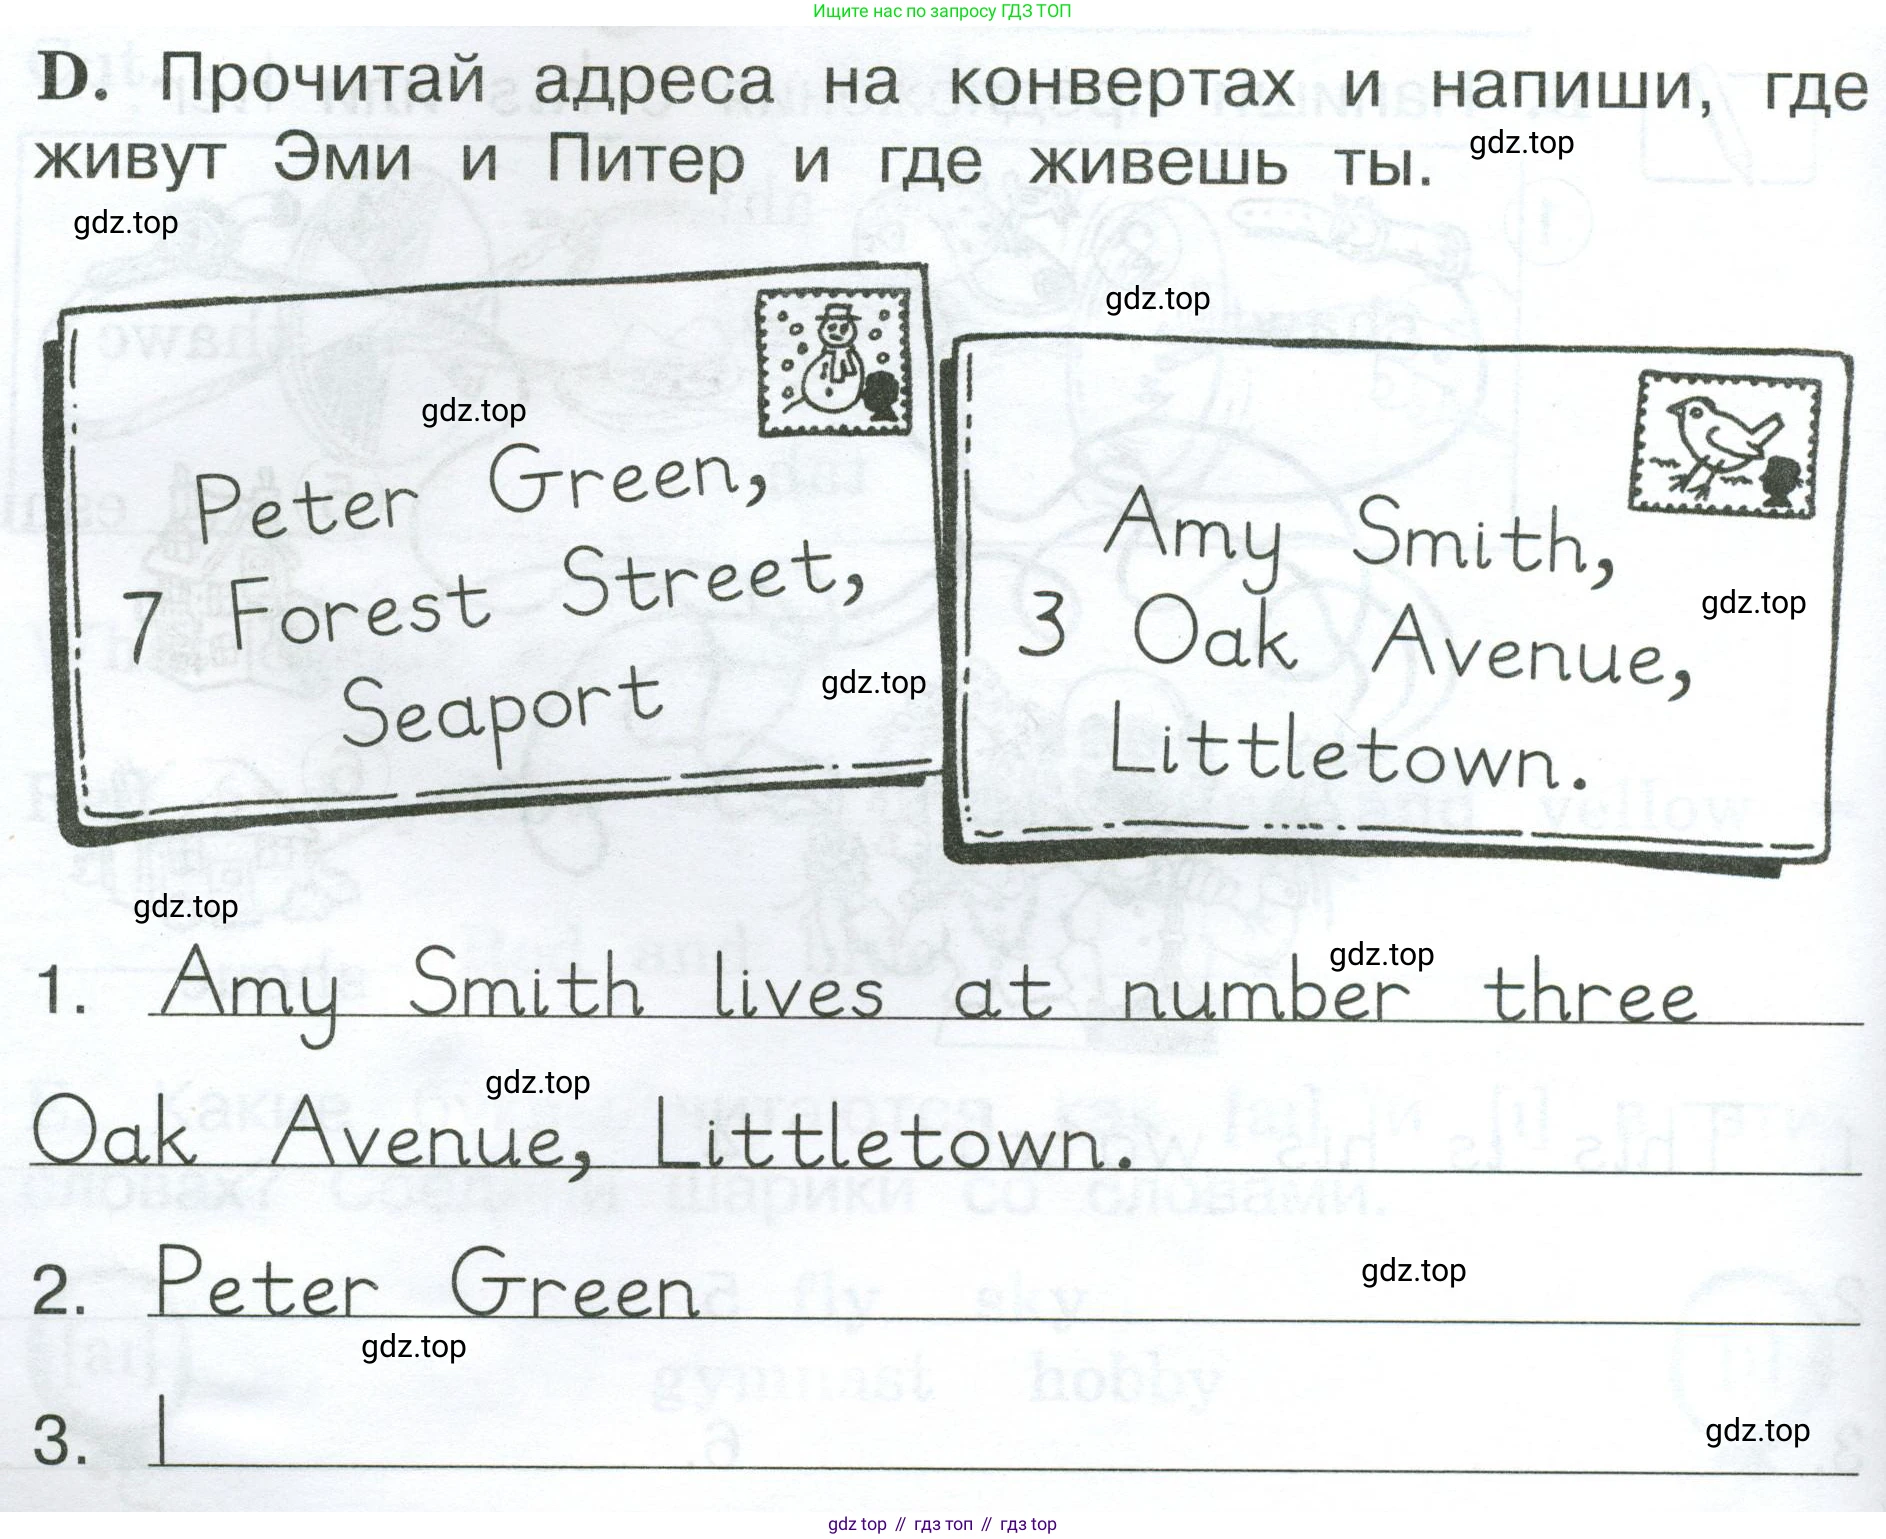 Ищите нас по запросу ГДЗ ТОП
D. Прочитай адреса на конвертах и напиши, где
живут Эми и Питер и где живешь ты.
gdz.top
gdz.top
gdz.top
gdz.top
Peter Green,
7 Forest Street,
Seaport
gdz.top
Amy Smith,
3 Oak Avenue,
Littletown.
gdz.top
gdz.top
gdz.top
1. Amy Smith lives at number three
gdz.top
Oak Avenue, Littletown.
gdz.top
2. Peter Green
gdz.top
3. I
gdz.top
gdz top // гдз топ // гдз top